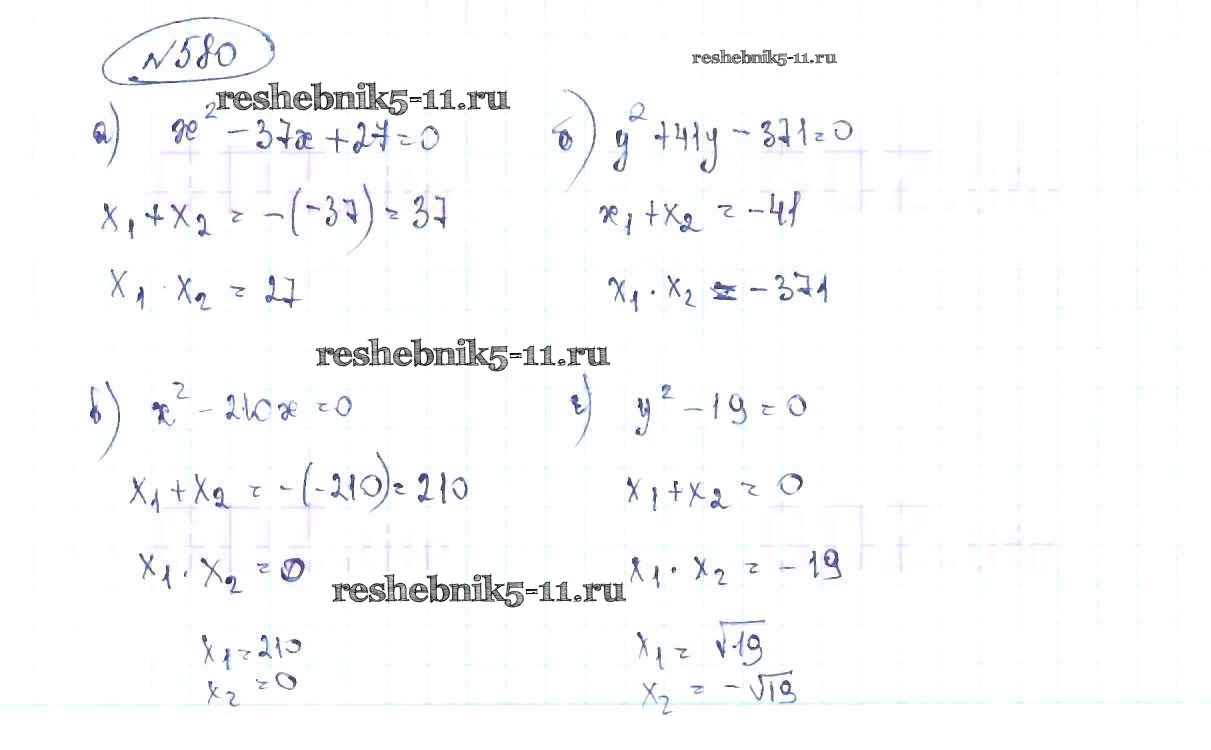 №580
reshebnik5-11.ru
reshebnik5-11.ru
а) x² - 37x + 27 = 0
x₁ + x₂ = -(-37) = 37
x₁ · x₂ = 27
б) y² + 41y - 371 = 0
x₁ + x₂ = -41
x₁ · x₂ = -371
reshebnik5-11.ru
в) x² - 210x = 0
x₁ + x₂ = -(-210) = 210
x₁ · x₂ = 0
reshebnik5-11.ru
x₁ = 210
x₂ = 0
г) y² - 19 = 0
x₁ + x₂ = 0
x₁ · x₂ = -19
x₁ = √19
x₂ = -√19